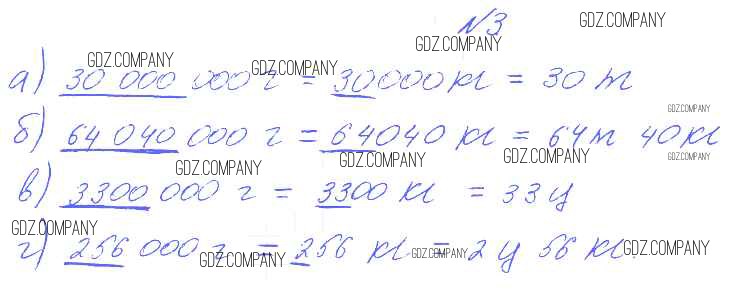 №3 GDZ.COMPANY
GDZ.COMPANY
GDZ.COMPANY GDZ.COMPANY
а) 30 000 000 г = 30000 кг = 30 т
GDZ.COMPANY
б) 64 040 000 г = 64040 кг = 64т 40 кг
GDZ.COMPANY GDZ.COMPANY GDZ.COMPANY GDZ.COMPANY
в) 3300 000 г = 3300 кг = 33 ц
GDZ.COMPANY
г) 256 000 г = 256 кг = 2 ц 56 кг.
GDZ.COMPANY GDZ.COMPANY GDZ.COMPANY